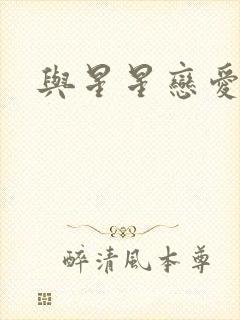 與星星戀愛
醉清風本尊